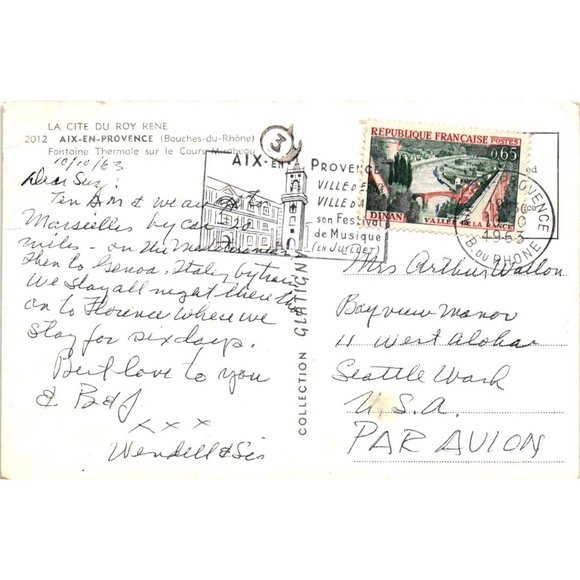 LA CITE DU ROY RENE
2012 AIX-EN-PROVENCE (Bouches-du-Rhône)
Fontaine Thermale sur le Cours Mirabeau
10/10/63
Dear Suz:
Ten A.M & we are off to
Marseilles by car 20
miles - on the Mediterranean
Then to Genoa, Italy by train
We stay all night there then
on to Florence where we
stay for six days.
Best love to you
& B & J.
x x x
Wendell & Sis
COLLECTION GLATIGNY
3
AIX-EN PROVENCE
VILLE D'
VILLE D'A
son Festival
de Musique
(EN JUILLET)
REPUBLIQUE FRANÇAISE POSTES
0,65
DINAN VALLÉE DE LA RANCE
PROVENCE
10
1963
B. DU RHONE
Mrs Arthur Wallon
Bayview Manor
11 West Aloha
Seattle Wash
U.S.A.
PAR AVION